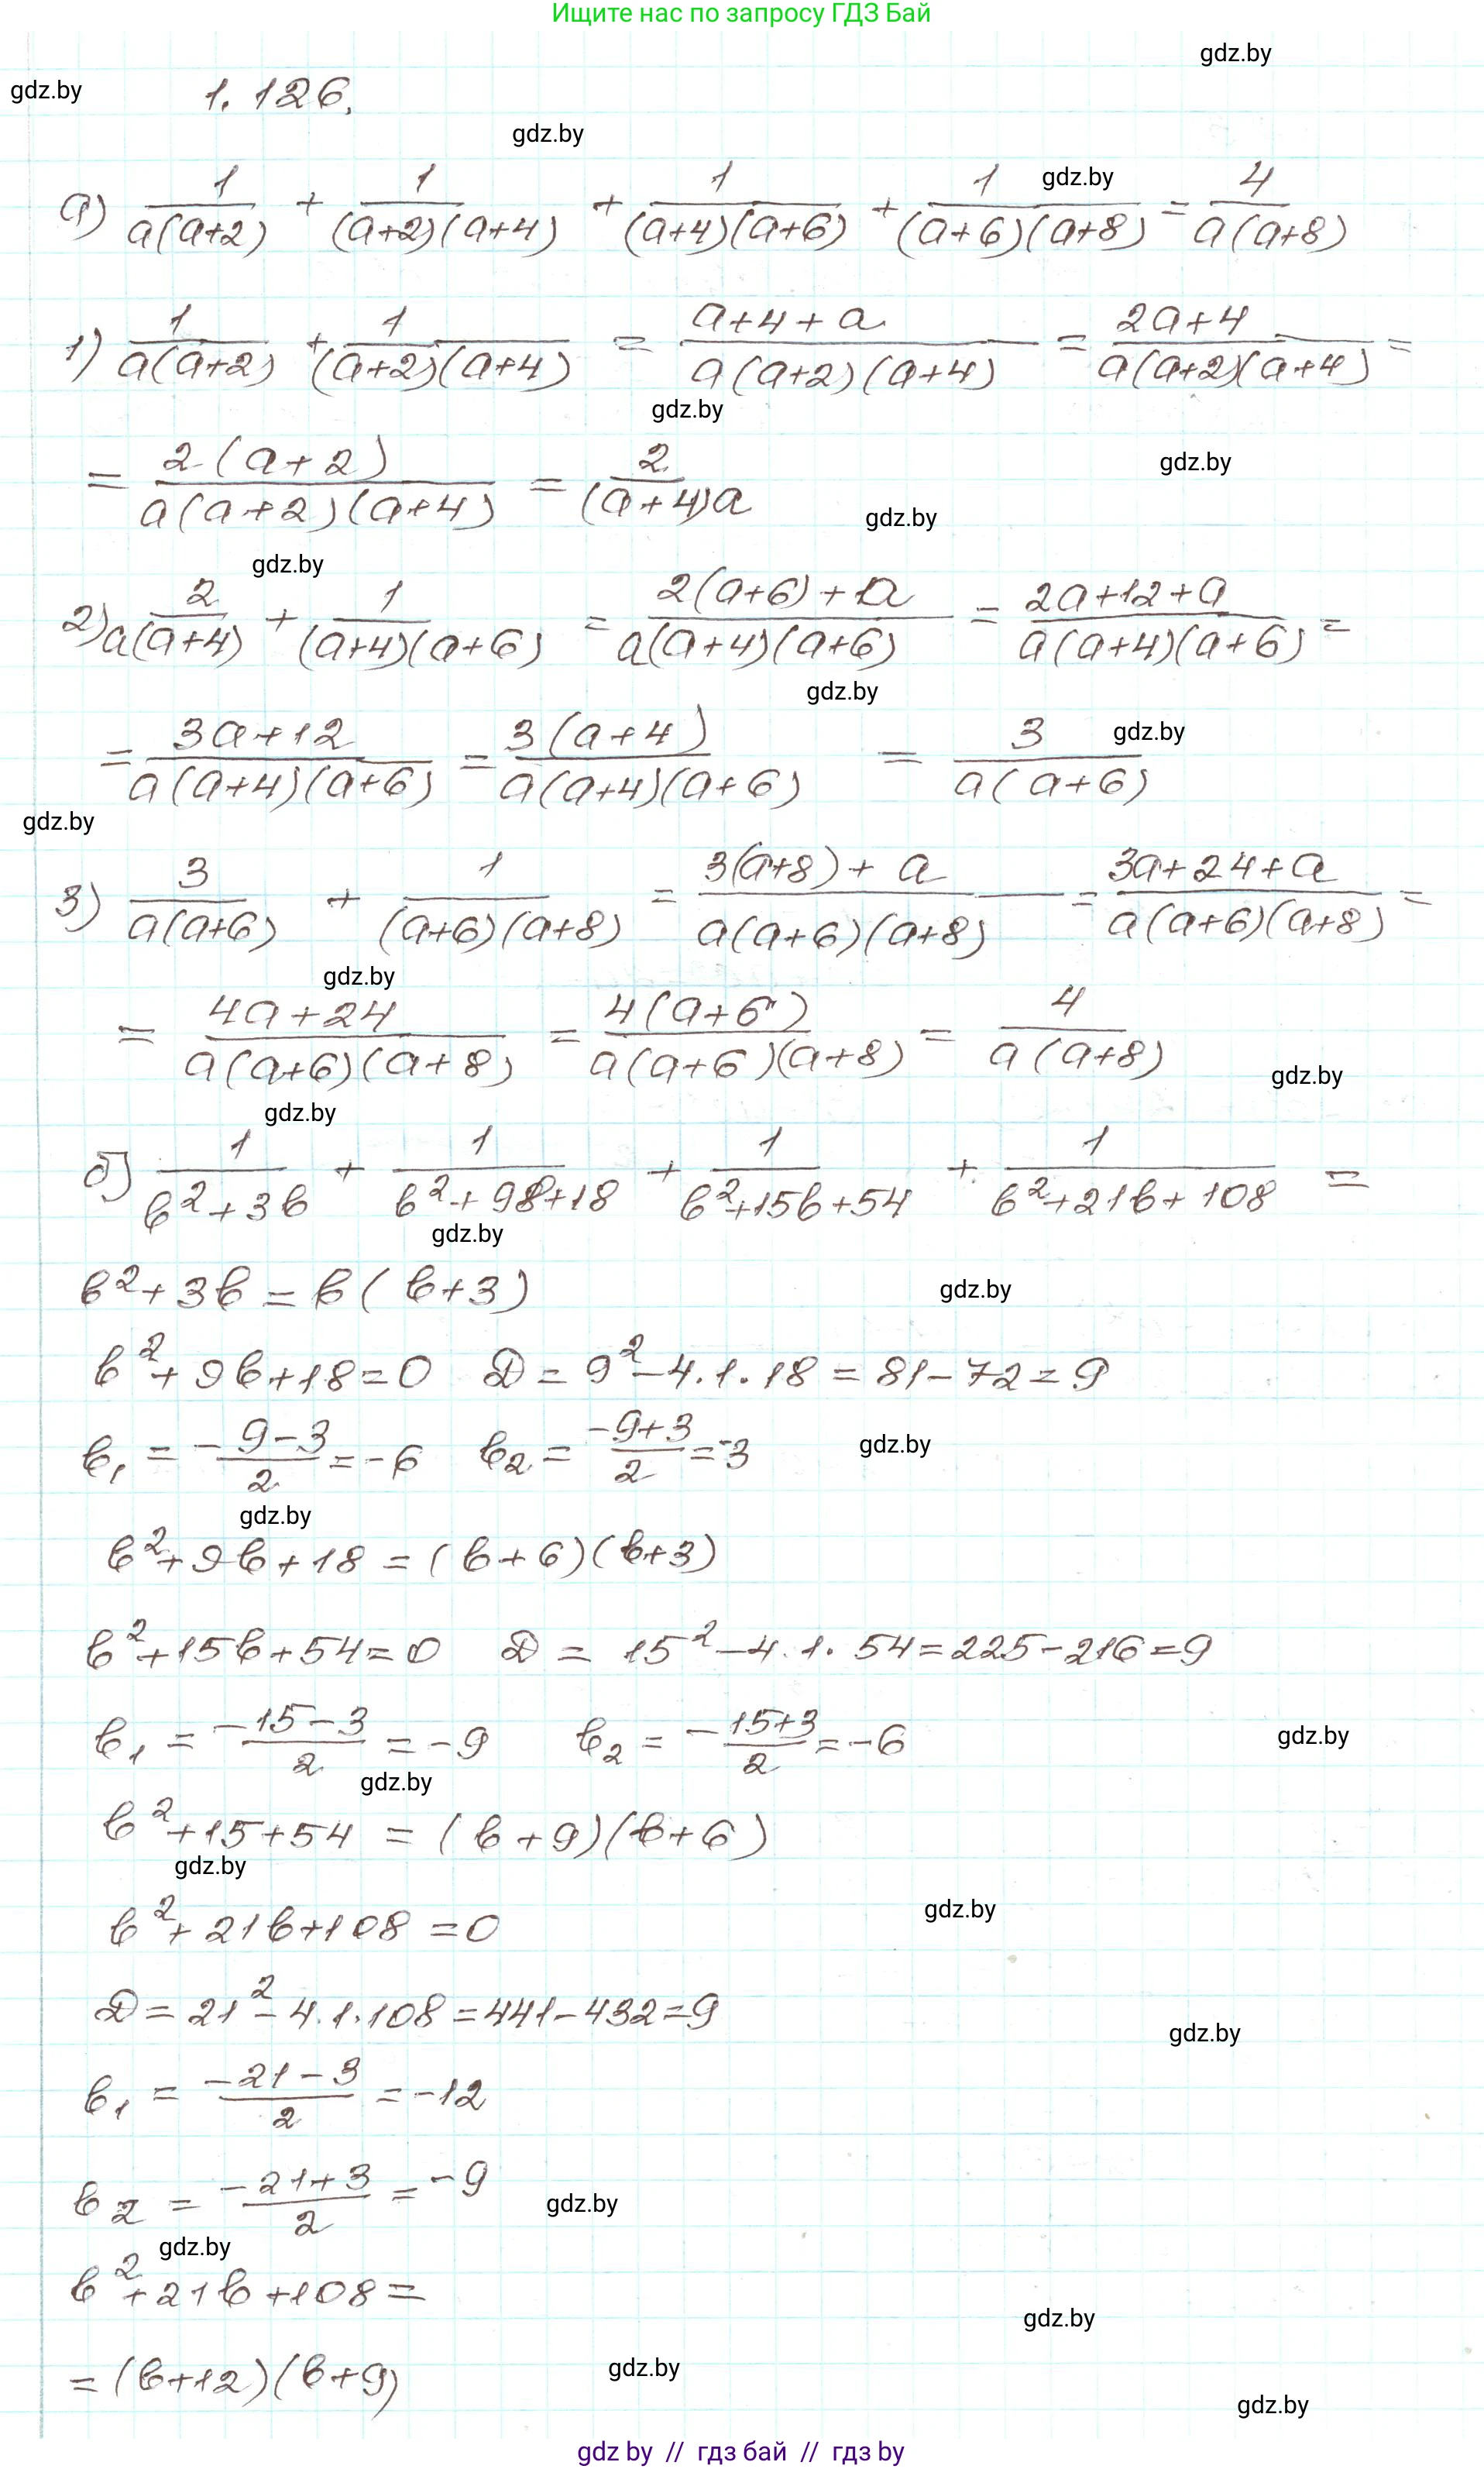 Ищите нас по запросу ГДЗ Бай
gdz.by
gdz.by
1.126.
gdz.by
gdz.by
а) 1/(a(a+2)) + 1/((a+2)(a+4)) + 1/((a+4)(a+6)) + 1/((a+6)(a+8)) = 4/(a(a+8))
1) 1/(a(a+2)) + 1/((a+2)(a+4)) = (a+4+a)/(a(a+2)(a+4)) = (2a+4)/(a(a+2)(a+4)) =
gdz.by
= (2(a+2))/(a(a+2)(a+4)) = 2/((a+4)a)
gdz.by
gdz.by
gdz.by
2) 2/(a(a+4)) + 1/((a+4)(a+6)) = (2(a+6)+a)/(a(a+4)(a+6)) = (2a+12+a)/(a(a+4)(a+6)) =
gdz.by
= (3a+12)/(a(a+4)(a+6)) = (3(a+4))/(a(a+4)(a+6)) = 3/(a(a+6))
gdz.by
gdz.by
3) 3/(a(a+6)) + 1/((a+6)(a+8)) = (3(a+8)+a)/(a(a+6)(a+8)) = (3a+24+a)/(a(a+6)(a+8)) =
gdz.by
= (4a+24)/(a(a+6)(a+8)) = (4(a+6))/(a(a+6)(a+8)) = 4/(a(a+8))
gdz.by
gdz.by
б) 1/(b²+3b) + 1/(b²+9b+18) + 1/(b²+15b+54) + 1/(b²+21b+108) =
gdz.by
b²+3b = b(b+3)
gdz.by
b²+9b+18=0 D = 9²-4·1·18 = 81-72=9
b₁ = -(9-3)/2 = -6 b₂ = (-9+3)/2 = -3
gdz.by
gdz.by
b²+9b+18 = (b+6)(b+3)
b²+15b+54=0 D = 15²-4·1·54=225-216=9
b₁ = (-15-3)/2 = -9 b₂ = (-15+3)/2 = -6
gdz.by
gdz.by
b²+15+54 = (b+9)(b+6)
gdz.by
gdz.by
b²+21b+108=0
D = 21²-4·1·108=441-432=9
gdz.by
b₁ = (-21-3)/2 = -12
b₂ = (-21+3)/2 = -9
gdz.by
gdz.by
b²+21b+108=
gdz.by
= (b+12)(b+9)
gdz.by
gdz.by
gdz by // гдз бай // гдз by